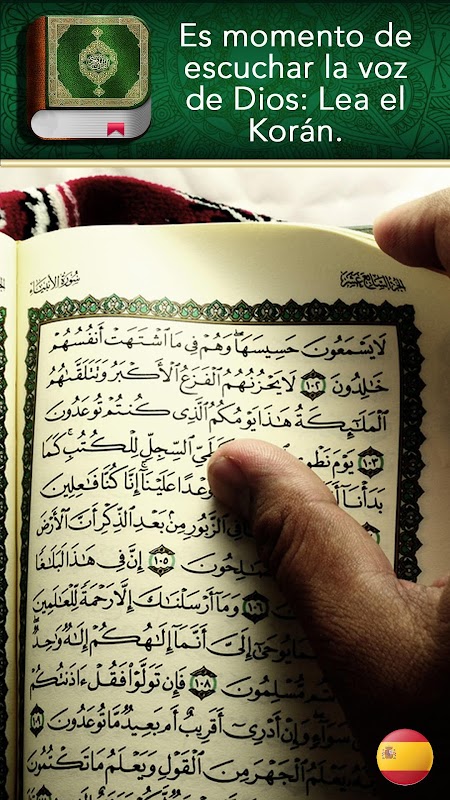 Es momento de
escuchar la voz
de Dios: Lea el
Korán.
الجزء السابع عشر
سورة الأنبياء
لَا يَسْمَعُونَ حَسِيسَهَا وَهُمْ فِي مَا اشْتَهَتْ أَنفُسُهُمْ
خَالِدُونَ ١٠٢ لَا يَحْزُنُهُمُ الْفَزَعُ الْأَكْبَرُ وَتَتَلَقَّاهُمُ
الْمَلَائِكَةُ هَذَا يَوْمُكُمُ الَّذِي كُنتُمْ تُوعَدُونَ
١٠٣ يَوْمَ السِّجِلِّ لِلْكُتُبِ كَمَا
بَدَأْنَا عَلَيْنَا إِنَّا كُنَّا فَاعِلِينَ
فِي الزَّبُورِ مِن بَعْدِ الذِّكْرِ أَنَّ الْأَرْضَ
١٠٥ إِنَّ فِي هَذَا لَبَلَاغًا
١٠٦ وَمَا أَرْسَلْنَاكَ إِلَّا رَحْمَةً لِّلْعَالَمِينَ
يُوحَى إِلَيَّ أَنَّمَا إِلَهُكُمْ إِلَهٌ وَاحِدٌ
مُّسْلِمُونَ ١٠٨ فَإِن تَوَلَّوْا فَقُلْ آذَنتُكُمْ
سَوَاءٍ وَإِنْ أَدْرِي أَقَرِيبٌ أَم بَعِيدٌ مَّا تُوعَدُونَ ١٠٩
يَعْلَمُ الْجَهْرَ مِنَ الْقَوْلِ وَيَعْلَمُ مَا تَكْتُمُونَ